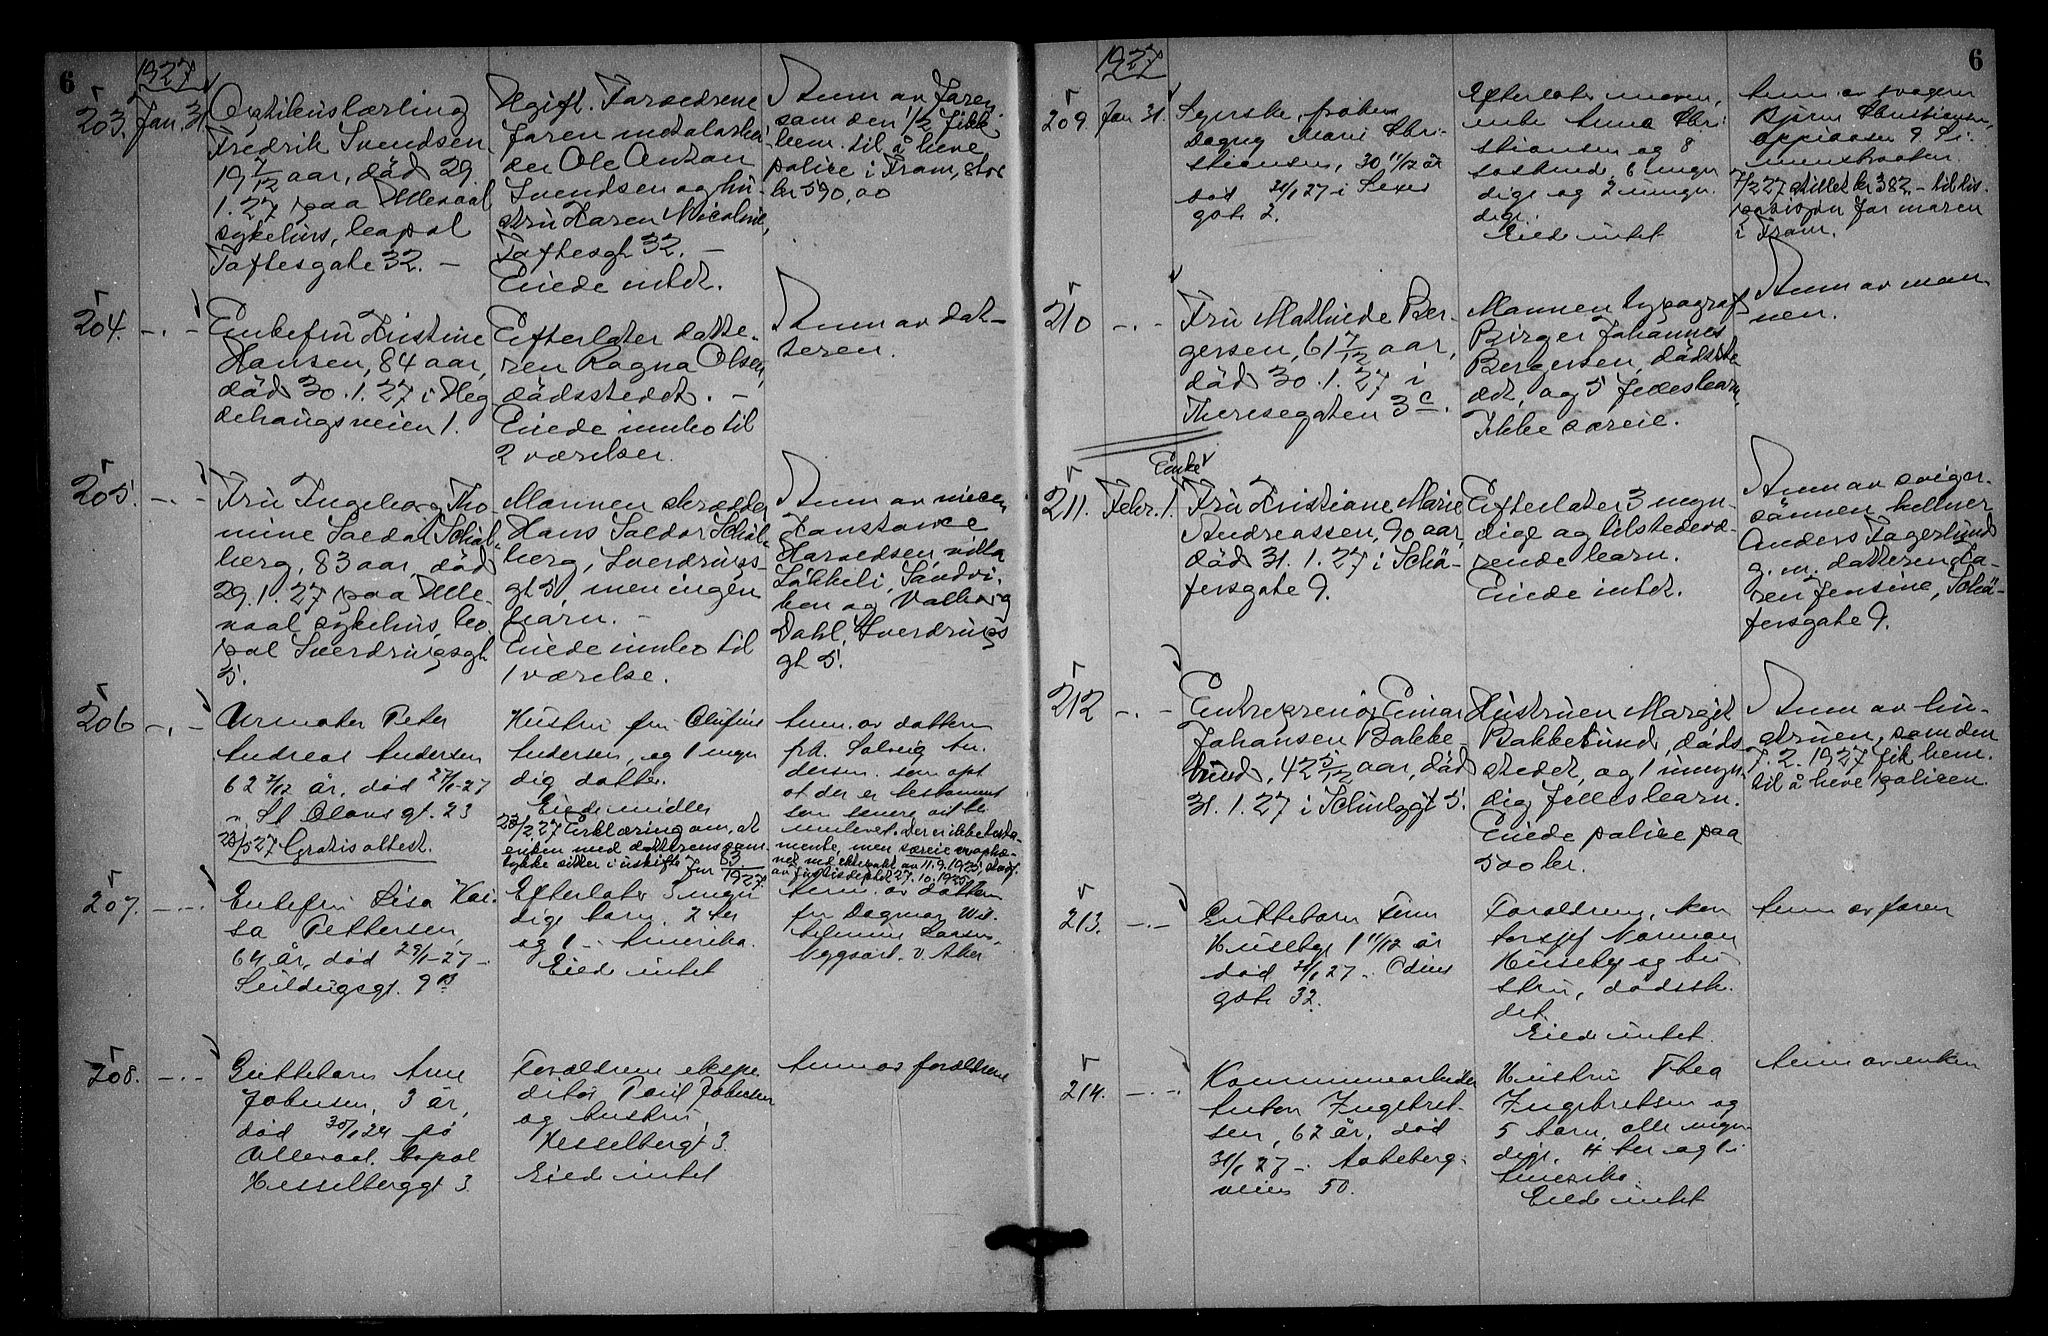 6
1927
203. Jan. 31.
Optikuslærling
Fredrik Svendsen
19 7/12 aar, död 29.
1.27 paa Ullevaal
sykehus, bopæl
Toftesgate 32. –
Ugift. Forældrene
faren metalarbei
der Ole Anton
Svendsen og hu-
stru Karen Nicoline,
Toftesgt 32. –
Eiede intet.
Anm. av faren
som den 1/2 fikk
hem. til å heve
police i Fram, stor
kr 590,00
204. -.-
Enkefru Kristine
Hansen, 84 aar,
död 30.1.27 i Heg
dehaugsveien 1.
Efterlater datte-
ren Ragna Olsen,
dödsstedet. –
Eiede innbo til
2 værelser.
Anm av dat-
teren.
205. -.-
Fru Ingeborg Tho-
mine Saldor Schul-
berg, 83 aar, död
29.1.27 paa Ulle-
vaal sykehus, bo
pæl Sverdrupsgt
5.
Mannen skrædder
Hans Saldor Schul-
berg, Sverdrups-
gt 5, men ingen
barn. –
Eiede innbo til
1 værelse.
Anm av niecen
Konstance
Haroldsen, villa
Sandvi-
ken og Valborg
Dahl, Sverdrups
gt 5.
206 -.-
Urmaker Peter
Andreas Andersen
62 2/12 år, död 27/1-27
St Olavs gt. 23
23/5 27 Gratis attest.
Hustru fru Olufine
Andersen, og 1 myn
dig datter.
Eiede midler
23/2 27 Erklæring om, at
enken med datterens sam
tykke sitter i uskifte
53
1927
Anm. av datteren
frk. Solveig An-
dersen. som opl
at der er testament
som senere vil bli
innlevert. Der er ikke testa
mente, men særeie
net ved ektepakt av 11.9.1925, stadf.
av Justisdeptet 27.10.1925
207. -.-
Enkefru Lisa Kai-
sa Pettersen,
64 år, död 29/1-27 –
Seilduksgt. 9 B
Efterlater 3 myn
dige barn, 2 her
og 1 i Amerika.
Eiede intet
Anm. av datteren
fru Dagmar Wil-
helmine Larsen,
Nygaard. V. Aker
208. -.-
Guttebarn Arne
Johnsen, 3 år,
död 30/1 27 på
Ullevaal. Bopæl
Hesselberggt 3.
Forældrene ekspe
ditör Paul Johnsen
og hustru,
Hesselberggt 3.
Eiede intet
Anm av forældrene
6
1927
209. Jan 31.
Syerske, fröken
Dagny Marie Chri-
stiansen, 30 11/12 år
död 30/1 27 i Sexes
gate 2.
Efterlater moren,
enke Anna Chri
stiansen og 8
söskend, 6 myn
dige og 2 umyn
dige.
Eiede intet
Anm. av svogeren
Björn Christiansen,
9
7/2 27 stillet kr 382 – til dis-
posisjon for moren
i Fram.
210 -.-
Fru Mathilde Ber-
gersen, 61 7/12 aar,
död 30.1.27 i
Theresegaten 3 c.
Mannen typograf
Birger Johannes
Bergersen, dödsste
det, og 5 fællesbarn.
Ikke særeie.
Anm av man
nen.
211. Febr. 1.
Enke
Fru Kristiane Marie
Andreassen, 90 aar,
död 31.1.27 i Schä-
fersgate 9.
Efterlater 3 myn-
dige og tilstedevæ-
rende barn.
Eiede intet.
Anm av sviger-
sönnen kelner
Anders Fagerlund
g.m. datteren Ka-
ren Jensine, Schä-
fersgate 9.
212 -.-
Entreprenör Einar
Johansen Bakke-
lund, 42 5/12 aar, död
31.1.27 i Schulzgt 5.
Hustruen Margit
Bakkelund, döds
stedet, og 1 umyn-
dig fællesbarn.
Eiede police paa
500 kr.
Anm av hu-
struen, som den
7.2.1927 fik hem.
til å heve policen
213. -.-
Guttebarn Finn
Huseby 1 11/12 år
död 31/1 27 i Odins
gate 32.
Forældrene, kon
torsjef Norman
Huseby og hu
stru, dödsste
det.
Eiede intet.
Anm av faren
214. -.-
Kommunearbeider
Anton Ingebret-
sen, 62 år, död
31/1 27 – Aakeberg-
veien 50.
Hustru Thea
Ingebretsen og
5 barn, alle myn-
dige, 4 her og 1 i
Amerika.
Eiede intet
Anm av enken